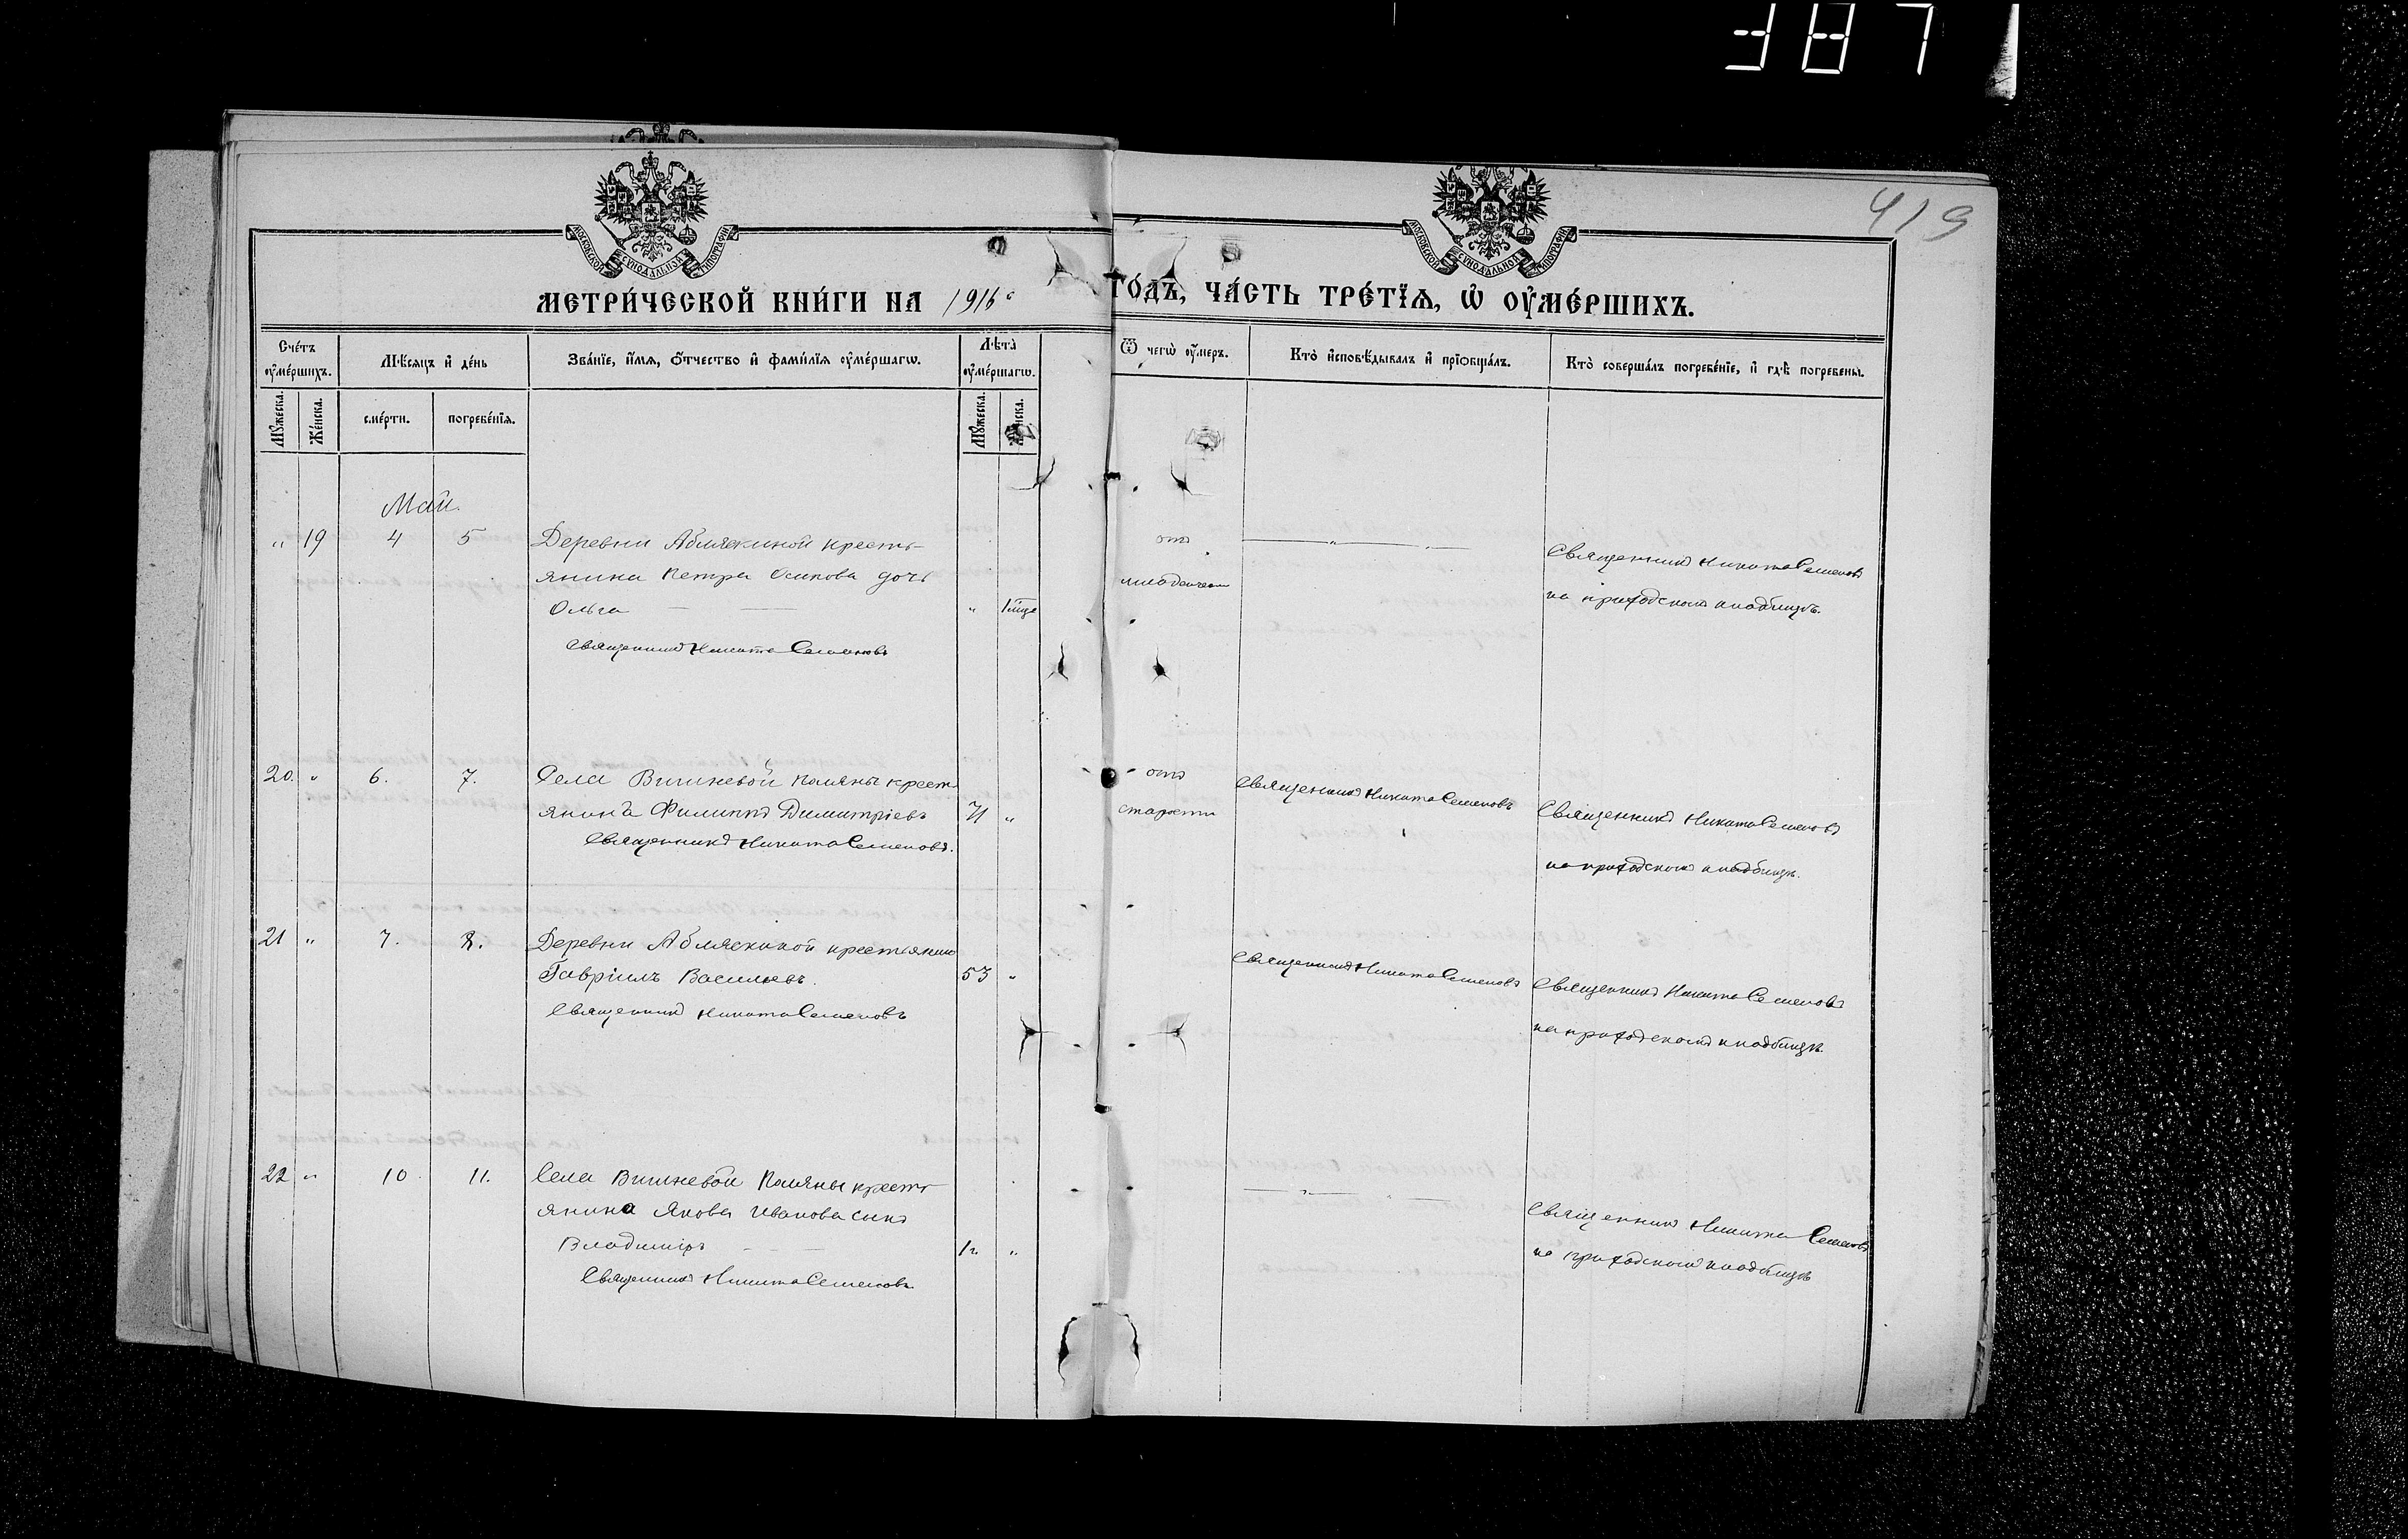 387
419
МОСКОВСКОЙ СУНОДАЛЬНОЙ ТИПОГРАФІИ
МОСКОВСКОЙ СУНОДАЛЬНОЙ ТИПОГРАФІИ
МЕТРИ́ЧЕСКОЙ КНИ́ГИ НА 1916 ГО́ДЪ, ЧА́СТЬ ТРЕ́ТЇѦ, Ѡ҆ ОУ҆МЕ́РШИХЪ.
Сче́тъ оу҆ме́ршихъ.
Мѣ́сяцъ и҆ де́нь
Зва́нїе, и҆́мѧ, ѻ҆́тчество и҆ фами́лїѧ оу҆ме́ршагѡ.
Лѣ́та̀ оу҆ме́ршагѡ.
Ѿ чегѡ̀ оу҆́меръ.
Кто̀ и҆сповѣ́дывалъ и҆ прїѡбща́лъ.
Кто̀ соверша́лъ погребе́нїе, и҆ гдѣ̀ погребены̀.
Мꙋ́жеска.
Же́нска.
сме́рти.
погребе́нїѧ.
Мꙋ́жеска.
Же́нска.
Май.
" 19 4 5 Деревни Абляскиной кресть-
янина Петра Осипова дочь
Ольга — — " 1 мца
Священникъ Никита Семеновъ
отъ
— " — " —
Священникъ Никита Семеновъ
на приходскомъ кладбищѣ.
20. " 6. 7. Села Вишневой Поляны крест
янинъ Филиппъ Димитріевъ 71 "
Священникъ Никита Семеновъ.
отъ
старости
Священникъ Никита Семеновъ
Священникъ Никита Семеновъ
на приходскомъ кладбищѣ.
21 " 7. 8. Деревни Абляскиной крестьянинъ
Гавріилъ Васильевъ. 53 "
Священникъ Никита Семеновъ
Священникъ Никита Семеновъ
Священникъ Никита Семеновъ
на приходскомъ кладбищѣ.
22 " 10. 11. Села Вишневой Поляны кресть
янина Якова Иванова сынъ
Владиміръ — — 1 г. "
Священникъ Никита Семеновъ.
— " — " —
Священникъ Никита Семеновъ
на приходскомъ кладбищѣ